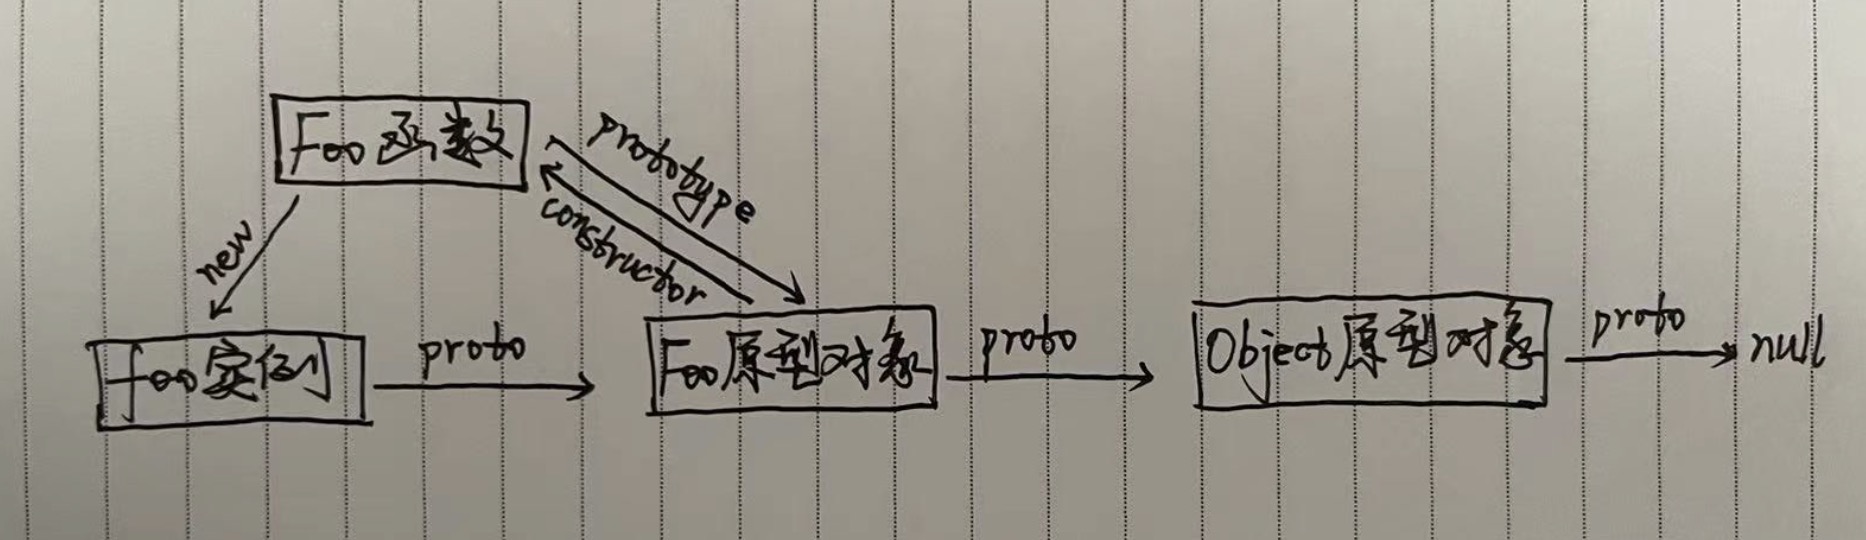 Foo函数
prototype
constructor
new
foo实例
proto
Foo原型对象
proto
Object原型对象
proto
null